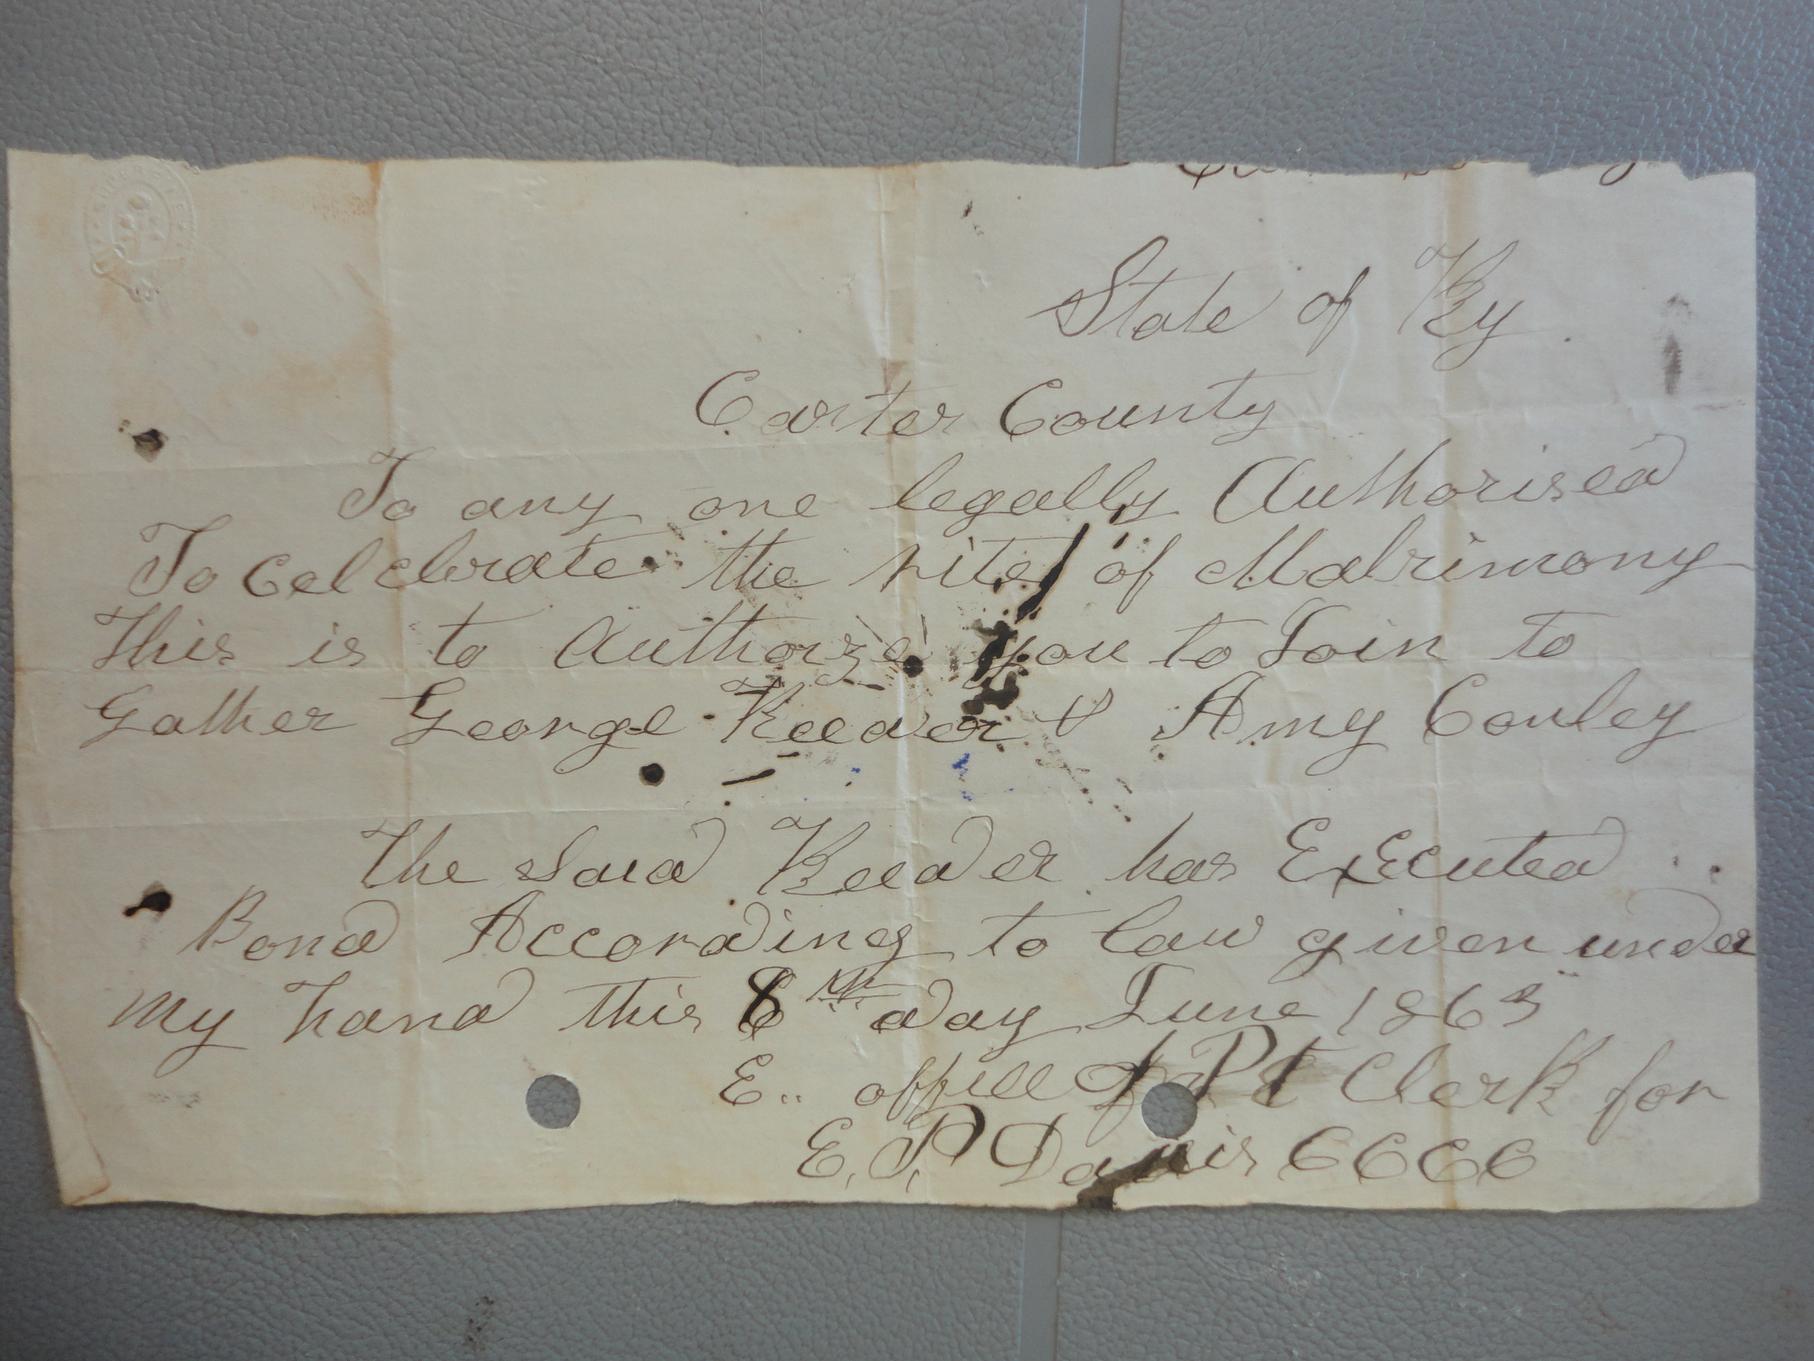 State of Ky
Carter County
To any one legally Authorised
To Celebrate the rites of Matrimony
This is to Authorze you to Join to
Gather George Keeder & Amy Conley
The Said Keeder has Executed
Bond According to law given under
my hand this 8th day June 1865
E.. offill Clerk for
E. P. Davis CCCC